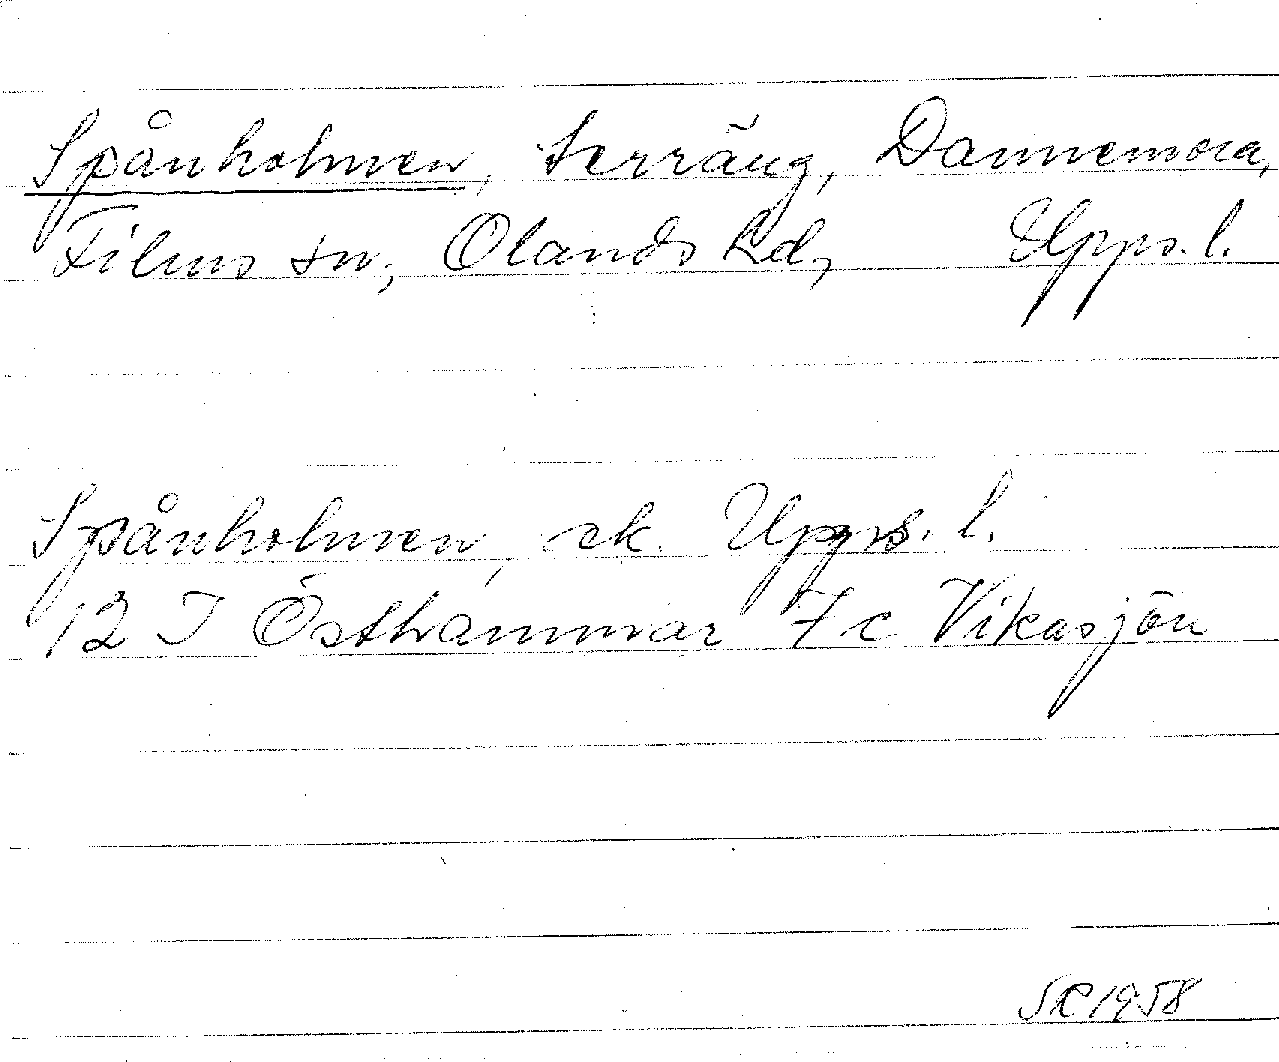 Spånholmen, terräng, Dannemora,
Films sn, Olands hd, Upps. l.
Spånholmen, ek. Upps. l.
12 I Östhammar 7 c Vikasjön
SC 1958